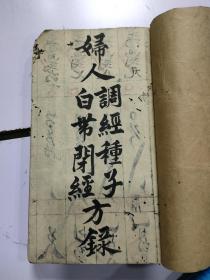 婦人調經種子
白带閉經方錄